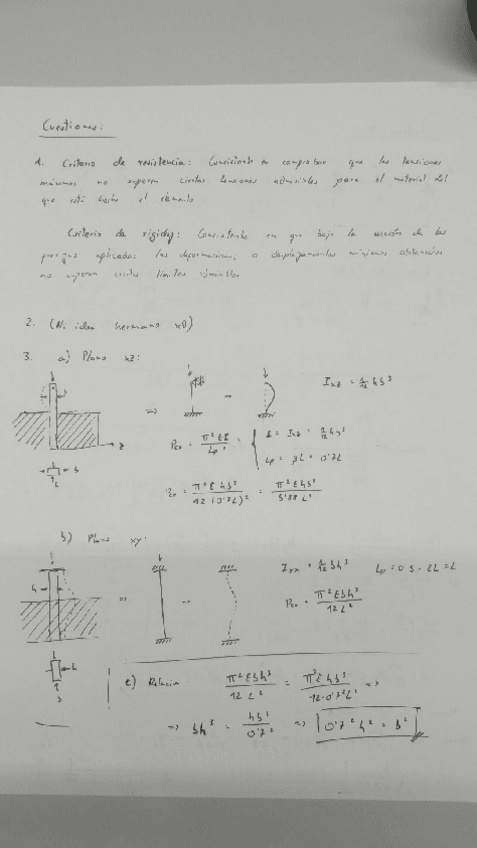 Cuestiones:
1. Criterio de resistencia: Consistente en comprobar que las tensiones
máximas no superan ciertas tensiones admisibles para el material del
que está hecho el elemento
Criterio de rigidez: Consistente en que bajo la acción de las
fuerzas aplicadas, las deformaciones, o desplazamientos máximos obtenidos
no superan ciertos límites admisibles
2. (Ni idea hermano xD)
3. a) Plano xz:
I_xz = 1/12 h b³
P_cr = π² E I / L_p² = { I = I_xz = 1/12 h b³
L_p = βL = 0'7L
P_cr = π² E h b³ / 12 (0'7L)² = π² E h b³ / 5'88 L²
b) Plano xy:
I_yx = 1/12 b h³ L_p = 0'5 · 2L = L
P_cr = π² E b h³ / 12 L²
c) Relación π² E b h³ / 12 L² = π² E h b³ / 12 · 0'7² L² =>
=> b h³ = h b³ / 0'7² => 0'7² h² = b²